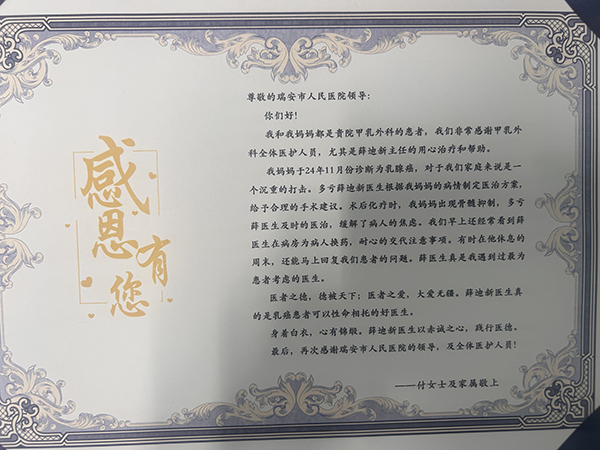 感恩有您
尊敬的瑞安市人民医院领导：
你们好！
我和我妈妈都是贵院甲乳外科的患者，我们非常感谢甲乳外
科全体医护人员，尤其是薛迪新主任的用心治疗和帮助。
我妈妈于24年11月份诊断为乳腺癌，对于我们家庭来说是一
个沉重的打击。多亏薛迪新医生根据我妈妈的病情制定医治方案，
给予合理的手术建议。术后化疗时，我妈妈出现骨髓抑制，多亏
薛医生及时的医治，缓解了病人的焦虑。我们早上还经常看到薛
医生在病房为病人换药，耐心的交代注意事项。有时在他休息的
周末，还能马上回复我们患者的问题。薛医生真是我遇到过最为
患者考虑的医生。
医者之德，德被天下；医者之爱，大爱无疆。薛迪新医生真
的是乳癌患者可以性命相托的好医生。
身着白衣，心有锦缎。薛迪新医生以赤诚之心，践行医德。
最后，再次感谢瑞安市人民医院的领导，及全体医护人员！
——付女士及家属敬上